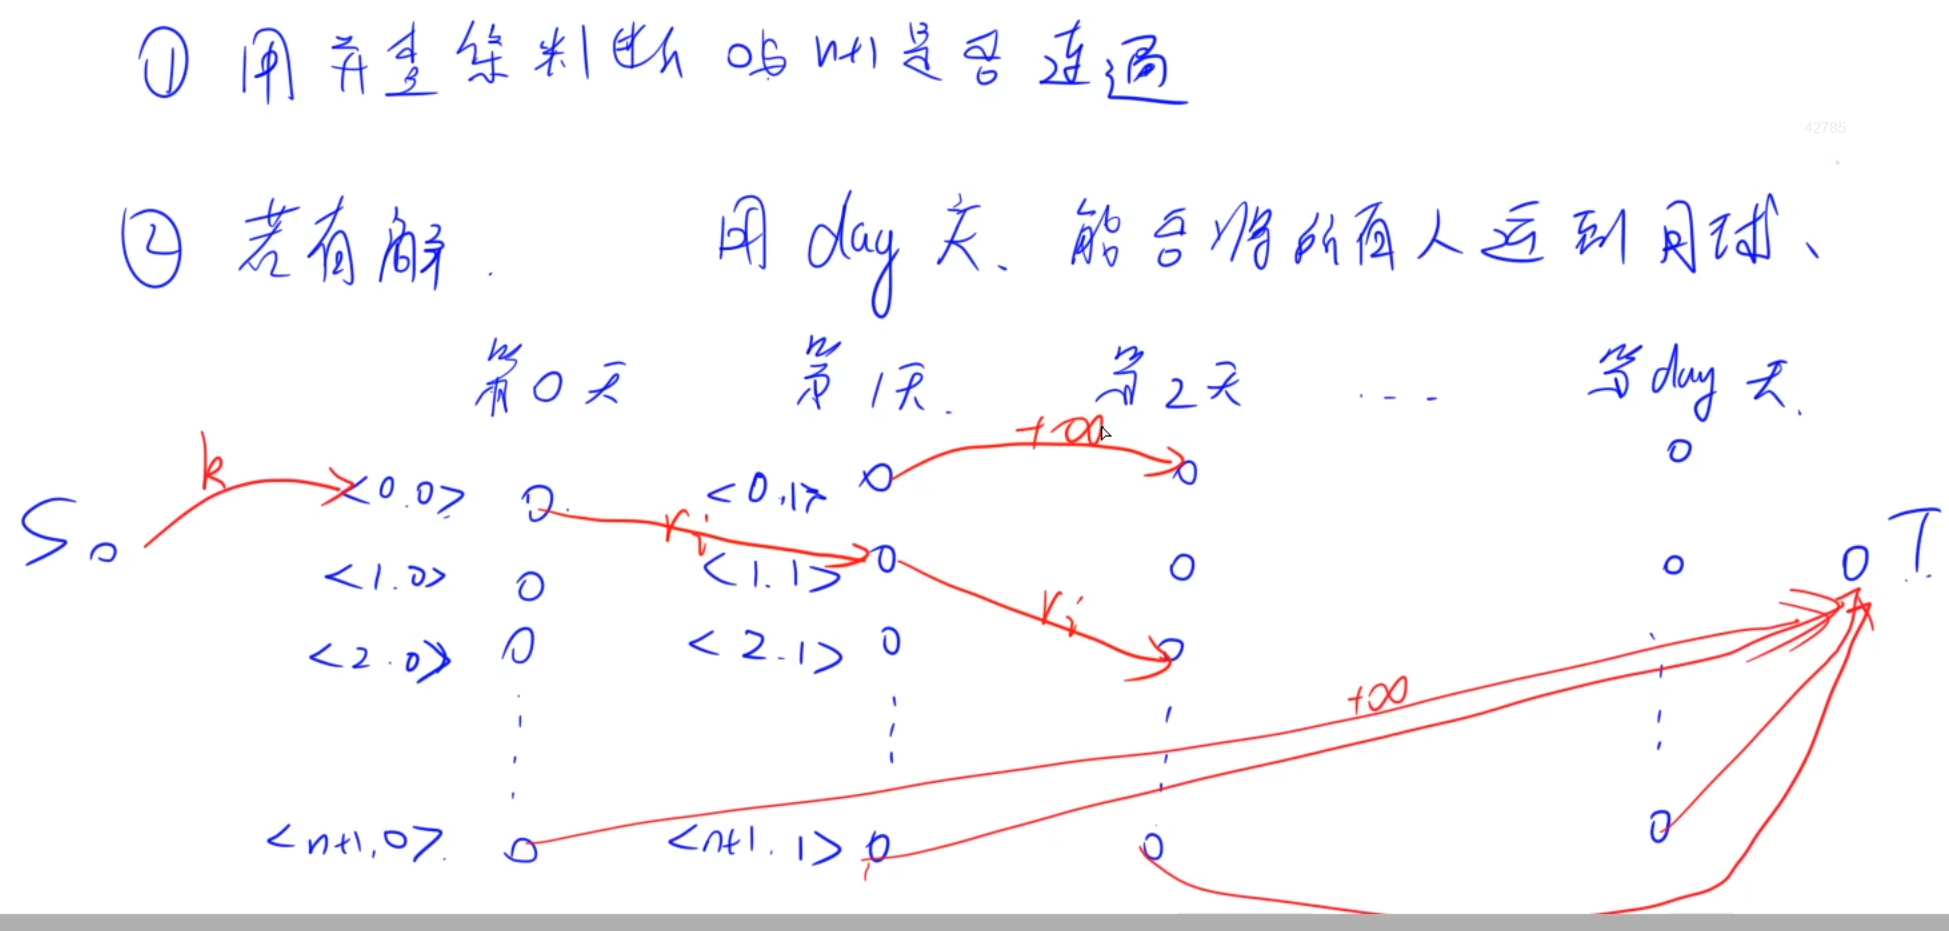 ① 用并查集判断 0与n+1是否连通
42785
② 若有解. 用day天、能否将所有人运到月球、
第0天 第1天. 第2天 ... 第day天.
+∞
k <0.0> <0.1>
S ri T
<1.0> <1.1>
ri
<2.0> <2.1>
+∞
<n+1,0>. <n+1.1>